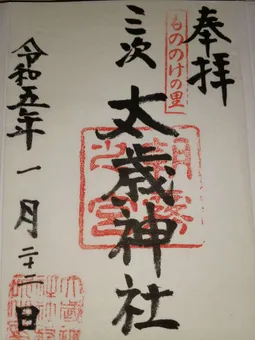 奉拝
もののけの里
三次
太歳神社
令和五年一月二十二日